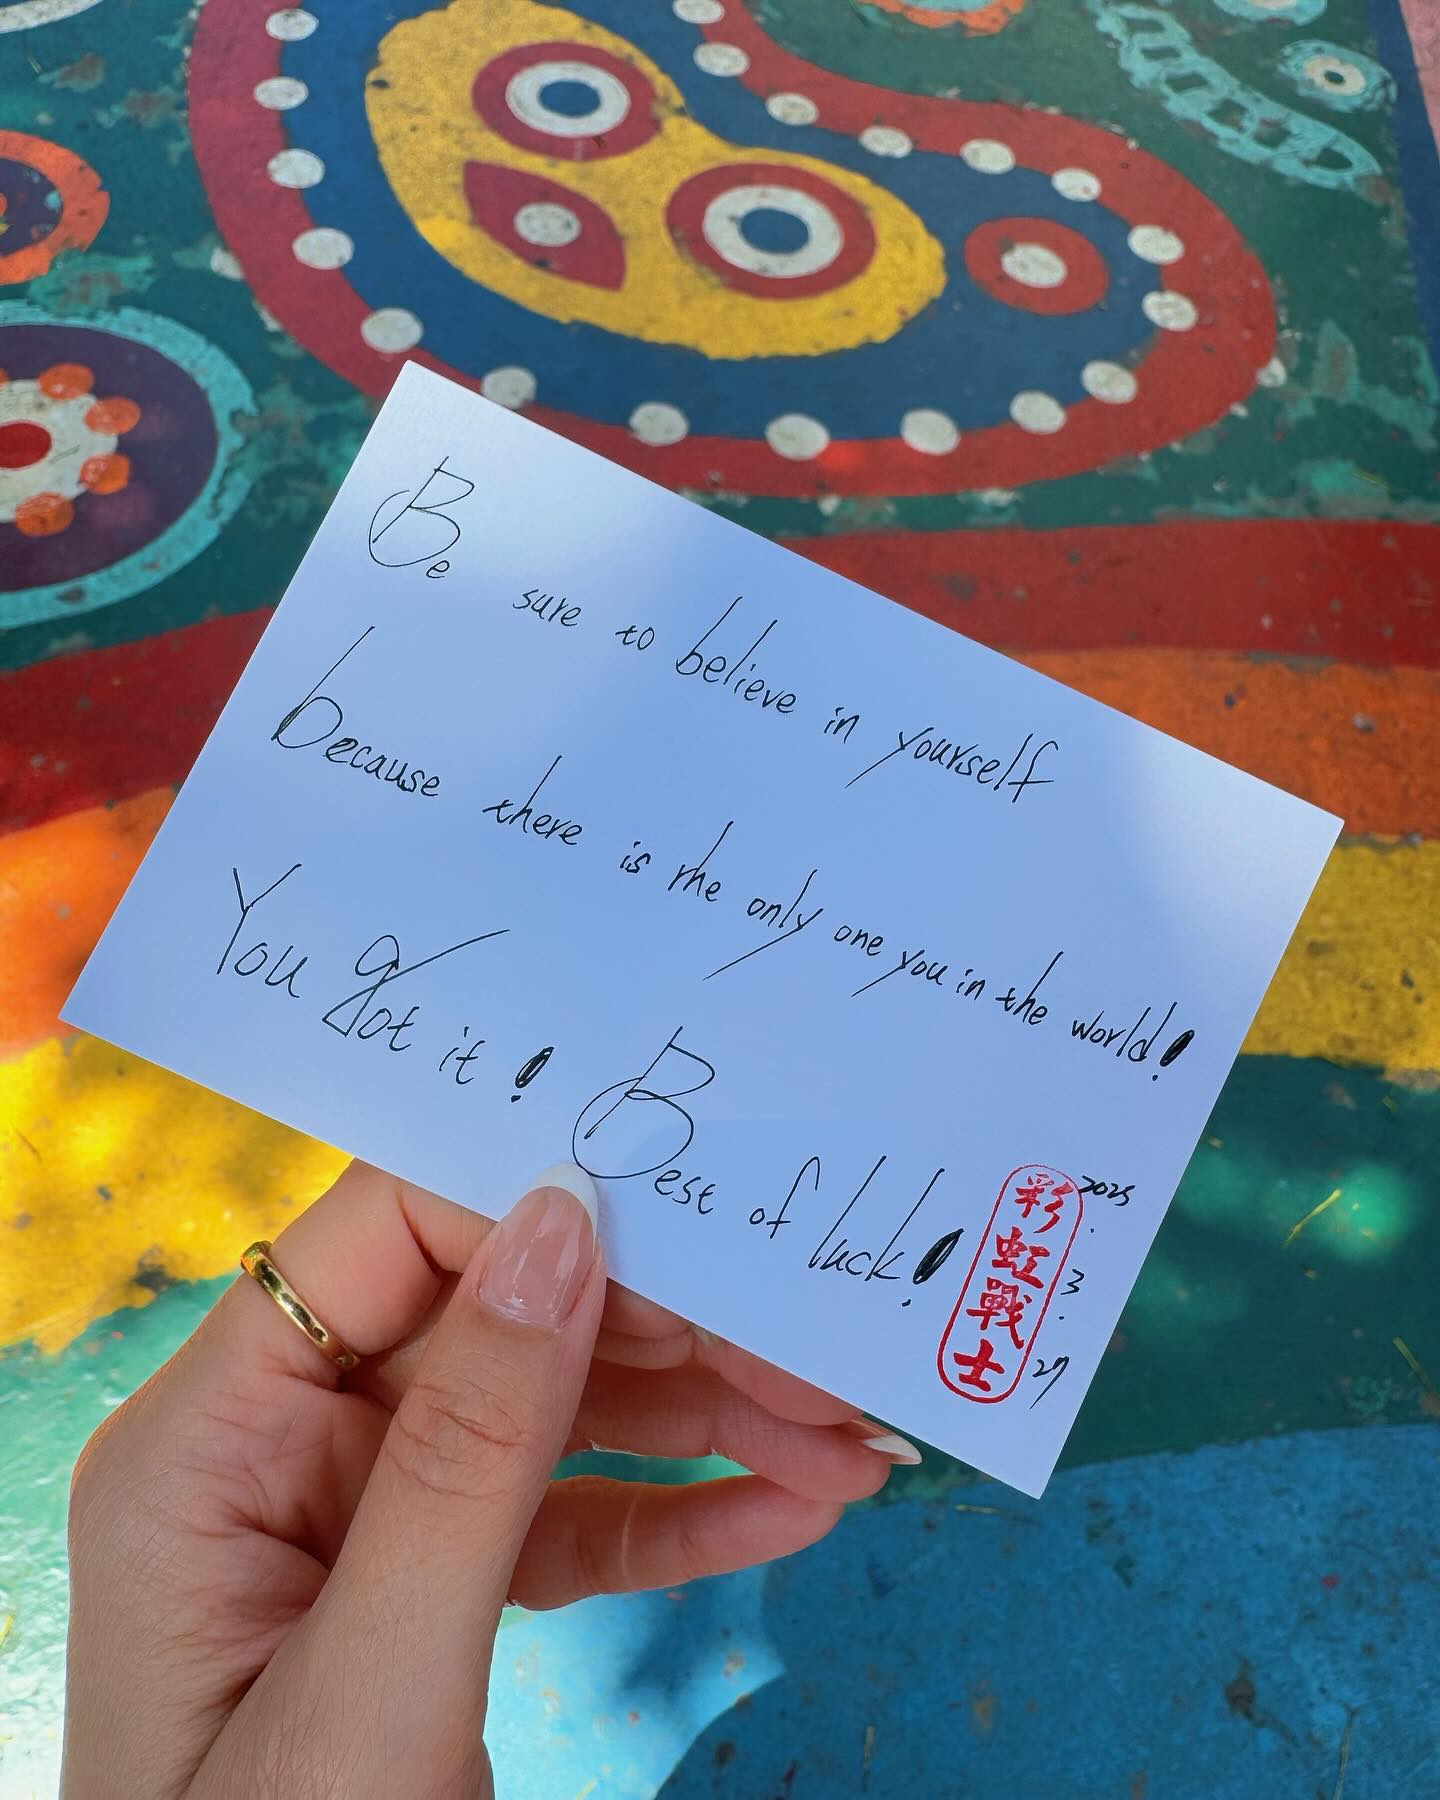 Be sure to believe in yourself
because there is the only one you in the world!
You got it! Best of luck!
彩虹戰士
2025.3.27